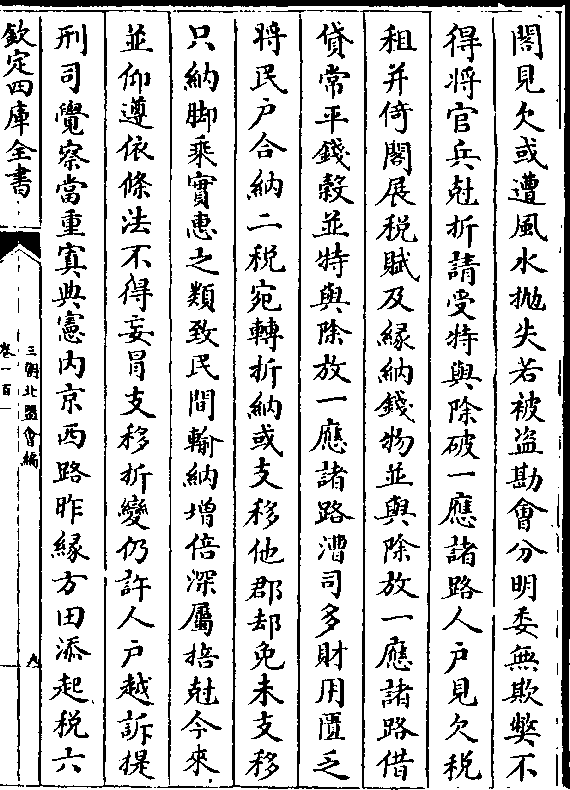 閣見欠或遭風水抛失若被盗勘會分明委無欺弊不
得將官兵尅折請受特與除破一應諸路人户見欠税
租并倚閣展税賦及緣納錢物並與除放一應諸路借
貸常平錢榖並特與除放一應諸路漕司多財用匱乏
將民户合納二税宛轉折納或支移他郡却免未支移
只納脚乘實惠之類致民間輸納增倍深屬掊尅今來
並仰遵依條法不得妄冒支移折變仍許人户越訴提
刑司覺察當重寘典憲内京西路昨緣方田添起税六
欽定四庫全書
三朝北盟會編
卷一百一
九